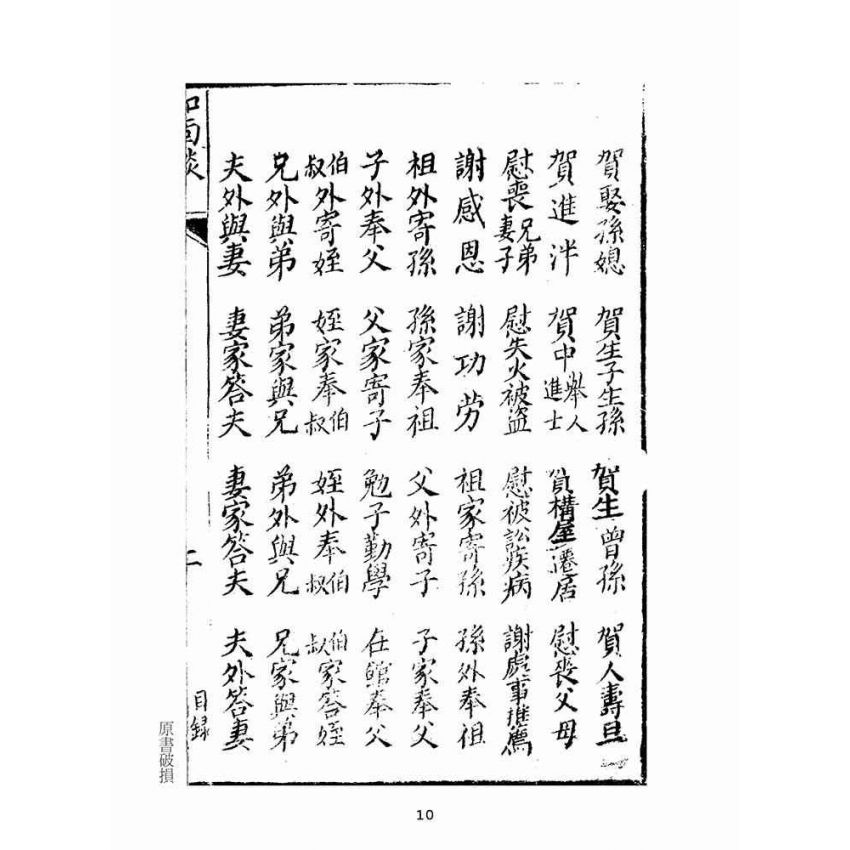 賀娶孫媳 賀生子生孫 賀生曾孫 賀人壽旦
賀進泮 賀中舉人進士 賀構屋遷居 慰喪父母
慰喪兄弟妻子 慰失火被盜 慰被訟疾病 謝處事推薦
謝感恩 謝功劳 祖家寄孫 孫外奉祖
祖外寄孫 孫家奉祖 父外寄子 子家奉父
子外奉父 父家寄子 勉子勤學 在館奉父
伯叔外寄姪 姪家奉伯叔 姪外奉伯叔 伯叔家答姪
兄外與弟 弟家與兄 弟外與兄 兄家與弟
夫外與妻 妻家答夫 妻家答夫 夫外答妻
如面談 二 目録
原書破損
10